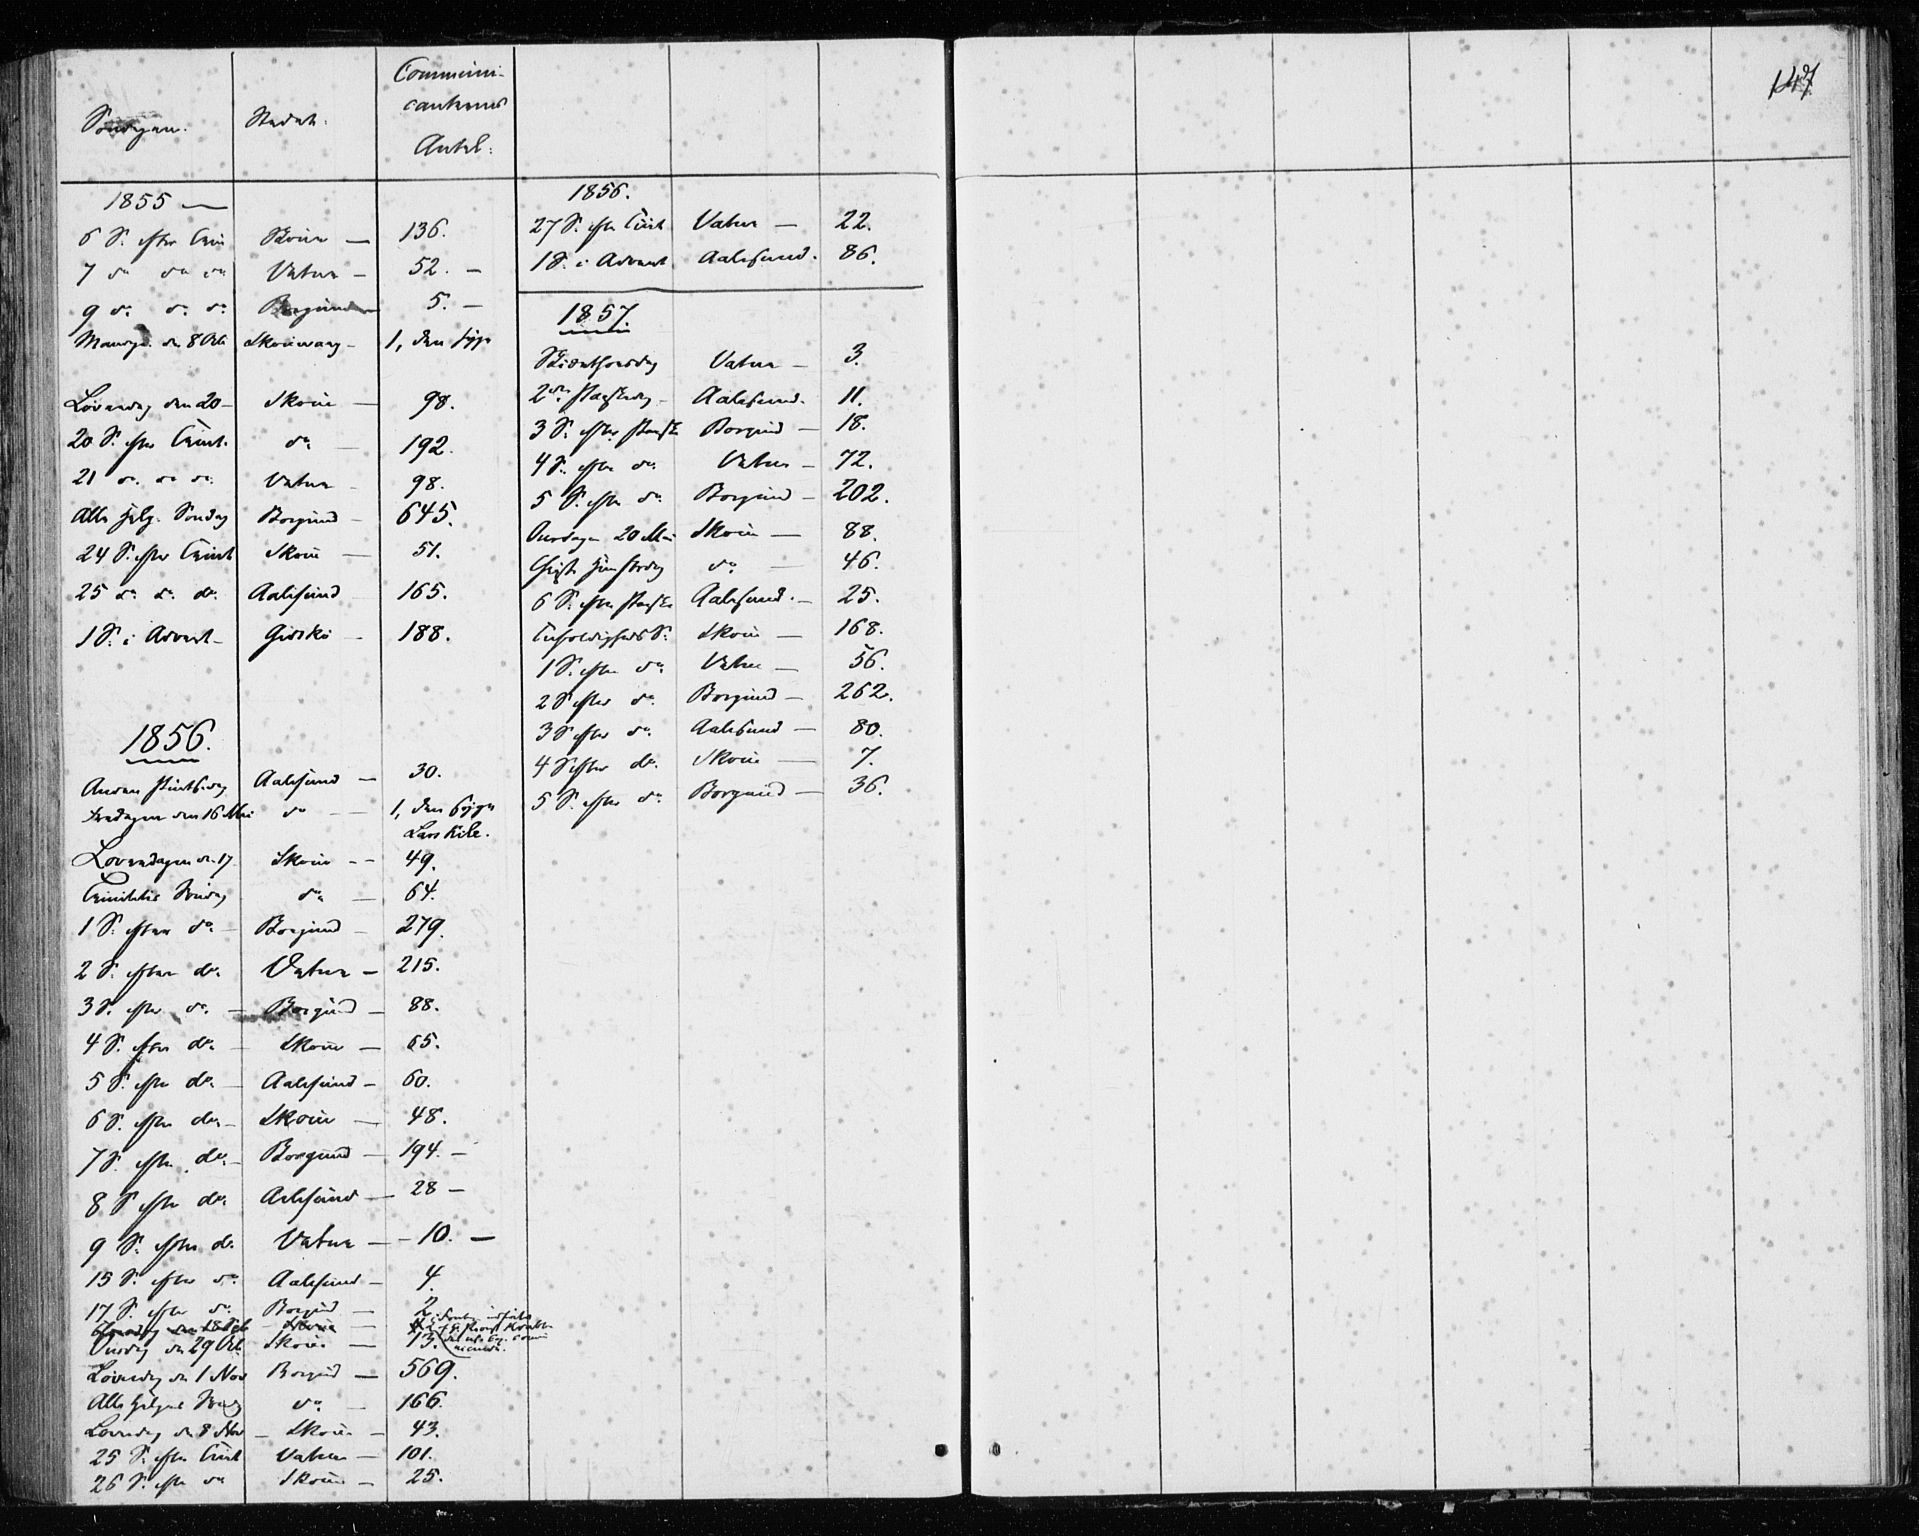 147
Søndagen. Stedet. Communi-
canternes
Antal.
1855 —
6 S. efter Trin Skoue — 136.
7 do do do Vatne — 52. —
9 do do do Borgund 5. —
den 8 Octb 1, den syge
Løverdag den 20 — Skoue — 98.
20 S. efter Trinit. do — 192.
21 do do do Vatne — 98.
Alle Helg. Søndag Borgund — 645.
24 S. efter Trinit Skoue — 51.
25 do do do Aalesund 165.
1 S. i Advent — Giskø — 188.
1856.
Anden Pintsedag Aalesund — 30.
Fredagen den 16 Mai do — 1, den syge
Lars
Løverdagen d. 17 Skoue — 49.
Trinitatis Søndag do — 64.
1 S. efter do — Borgund — 279.
2 S. efter do. Vatne — 215.
3 S. efter do. — Borgund — 88.
4 S. efter do — Skoue — 65.
5 S. efter do. — Aalesund — 60.
6 S. efter do — Skoue — 48.
7 S. efter do — Borgund — 194. —
8 S efter do. Aalesund — 28 —
9 S. efter do Vatne — 10. —
15 S. efter do Aalesund — 4.
17 S. efter do. Borgund — 2
den 18 Skoue
Onsdag den 29 Oct. Skoue — 13.
Løverdag den 1 Nov Borgund — 569.
Alle Helgens Søndag do — 166.
Løverdag den 8 Nov — Skoue — 43.
25 S. efter Trinit Vatne — 101.
26 S. efter do Skoue — 25.
1856.
27 S. efter Trinit Vatne — 22.
1 S. i Advent Aalesund. 86.
1857.
Skiærthorsdag Vatne — 3.
2den Paaskedag — Aalesund. 11.
3 S. efter Paaske Borgund — 18.
4 S. efter do. Vatne — 72.
5 S. efter do Borgund — 202.
Onsdagen 20 Mai Skoue — 88.
Christi Himmelfartsdag do — 46.
6 S. efter Paaske Aalesund. — 25.
Trefoldigheds S. Skoue — 168.
1 S. efter do Vatne — 56.
2 S efter do. Borgund — 262.
3 S efter do. Aalesund — 80.
4 S efter do. Skoue — 7.
5 S. efter do Borgund — 36.